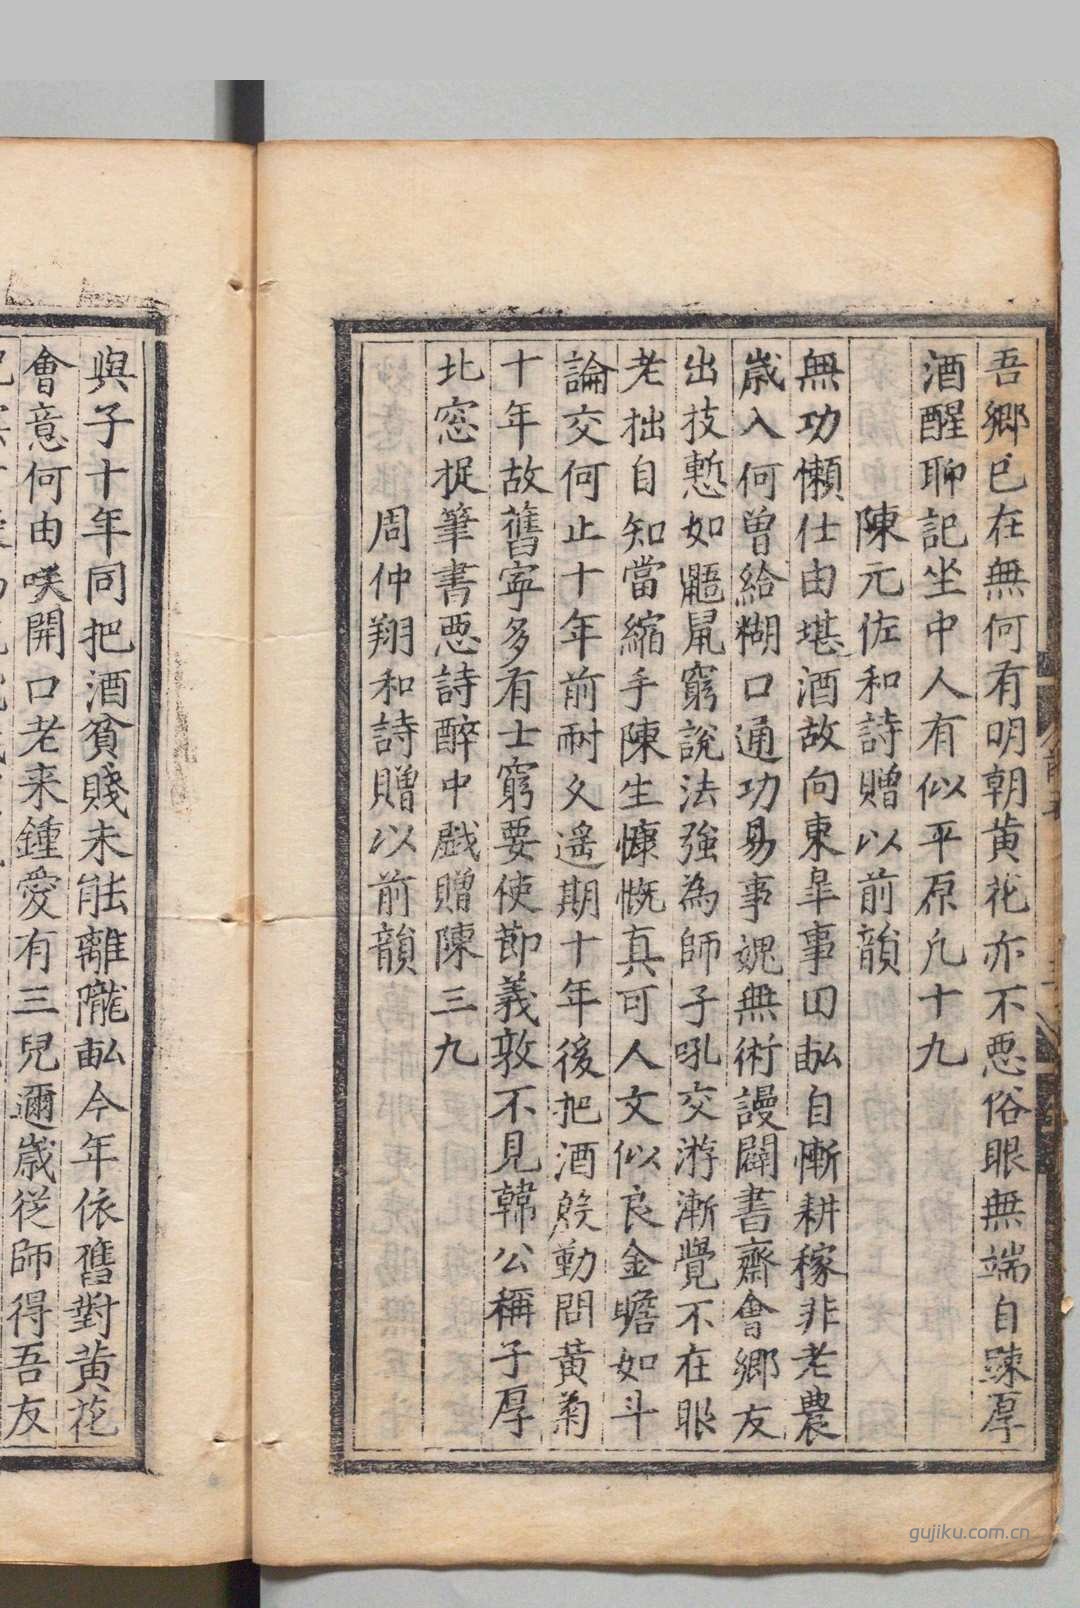 吾鄉已在無何有明朝黄花亦不惡俗眼無端自踈厚
酒醒聊記坐中人有似平原凢十九
陳元佐和詩贈以前韻
無功懶仕由堪酒故向東皐事田畝自慚耕稼非老農
嵗入何曽給糊口通功易事媿無術謾闢書齋會鄉友
出技慙如鼯鼠窮說法強為師子吼交游漸覺不在眼
老拙自知當縮手陳生慷慨真可人文似良金瞻如斗
論交何止十年前耐久遥期十年後把酒慇勤問黃菊
十年故舊寧多有士窮要使節義敦不見韓公稱子厚
北窓捉筆書惡詩醉中戯贈陳三九
周仲翔和詩贈以前韻
與子十年同把酒貧賤未能離隴畝今年依舊對黄花
會意何由咲開口老来鍾愛有三兒邇嵗從師得吾友
gujiku.com.cn